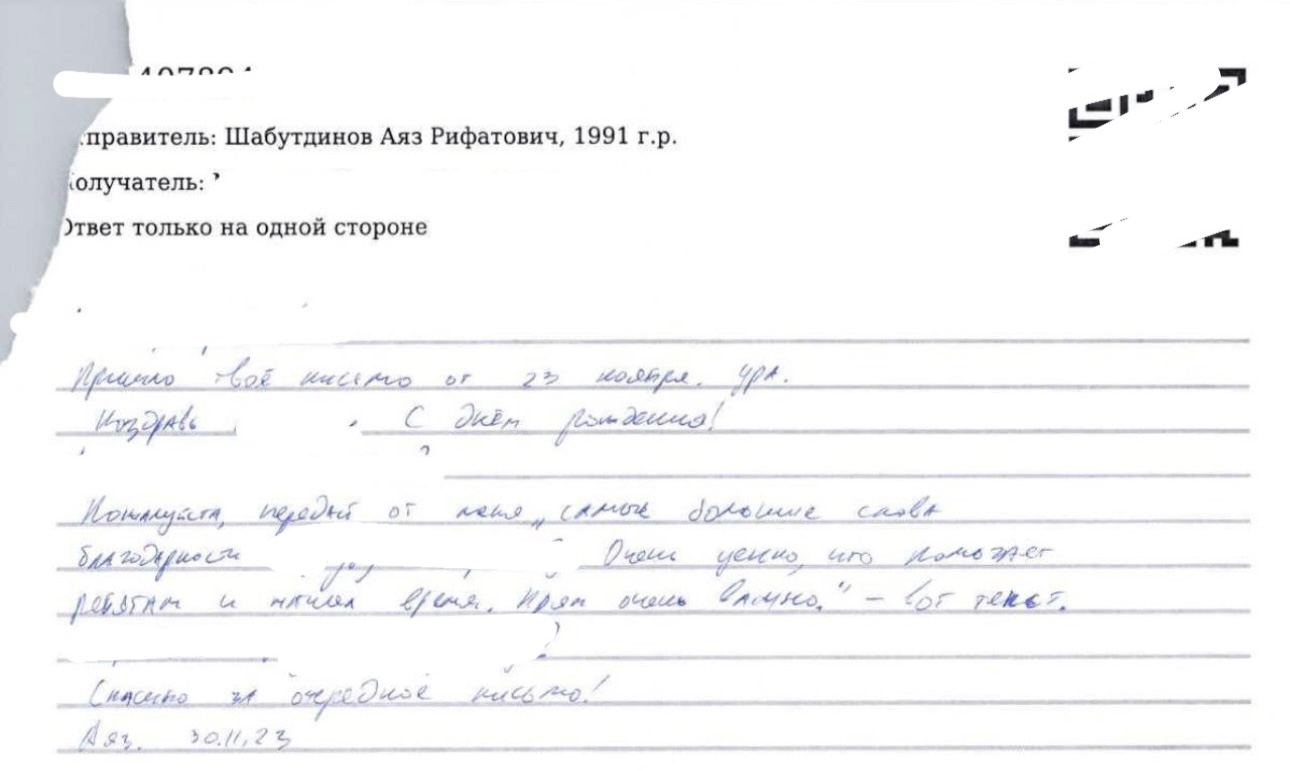 правитель: Шабутдинов Аяз Рифатович, 1991 г.р.
олучатель:
Ответ только на одной стороне
Пришло твоё письмо от 23 ноября. Ура.
Поздравь С днём рождения!
Пожалуйста, передай от меня „самые большие слова
благодарности Очень ценно, что помогает
ребятам и нашёл время. Прям очень важно." – вот текст.
Спасибо за очередное письмо!
Аяз. 30.11.23